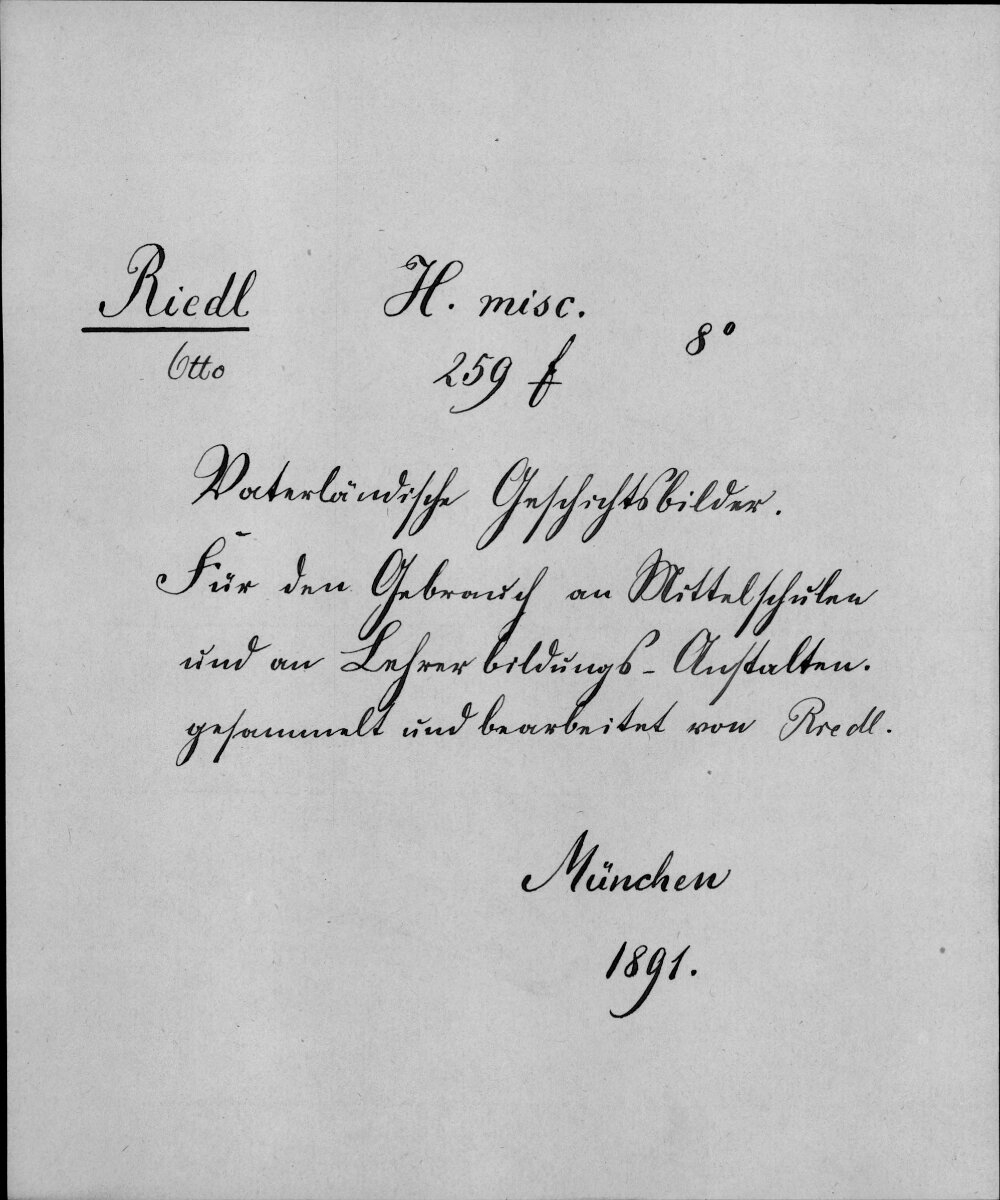 Riedl H. misc. 8°
Otto 259 f
Vaterländische Geschichtsbilder.
Für den Gebrauch an Mittelschulen
und an Lehrerbildungs-Anstalten.
gesammelt und bearbeitet von Riedl.
München
1891.